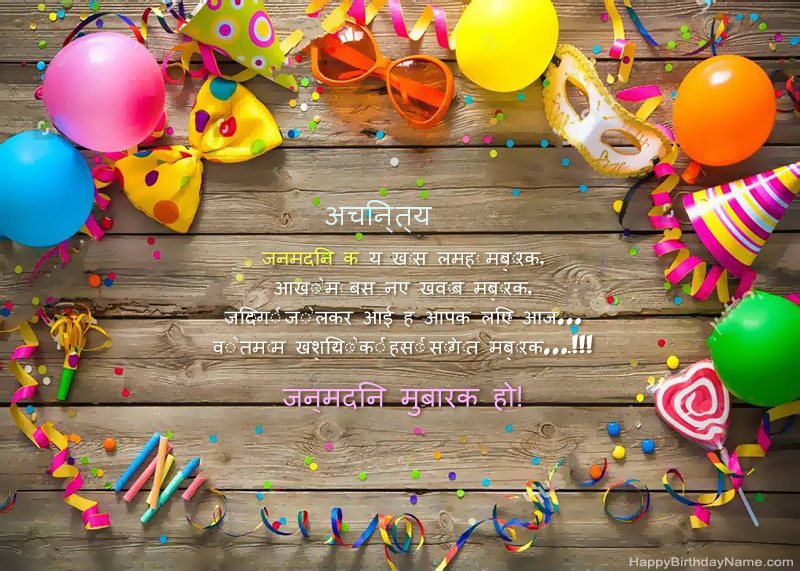 अचिन्त्य
जन्मदिन के ये खास लम्हें मुबारक,
आँखों में बसे नए ख्वाब मुबारक,
जिंदगी जो लेकर आई है आपके लिए आज...
वो तमाम खुशियों की हंसीं सौगात मुबारक...!!!
जन्मदिन मुबारक हो!
HappyBirthdayName.com